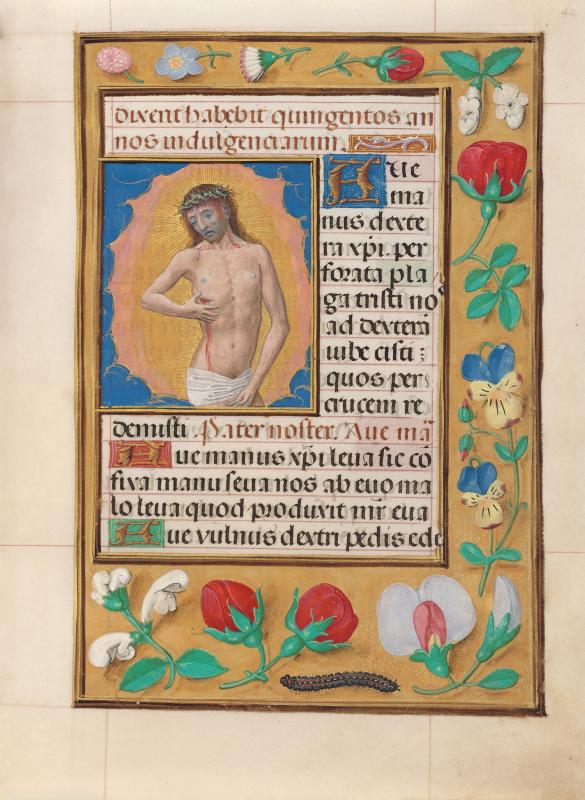 dixerit habebit quingentos an
nos indulgenciarum.
Aue
ma
nus dexte
ra xp̄i. per
forata pla
ga tristi nos
ad dexterā
iube cisti:
quos per
crucem re
demisti. Pater noster. Aue mā
Aue manus xp̄i leua sic cō
fixa manu seua nos ab euo ma
lo leua quod produxit nr̄r eua
Aue vulnus dextri pedis ede